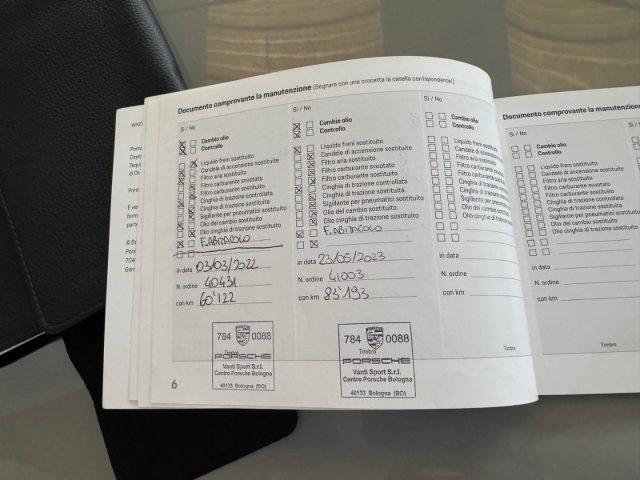 Documento comprovante la manutenzione (Segnare con una crocetta la casella corrispondente!)
Sì / No
Cambio olio
Controllo
Liquido freni sostituito
Candele di accensione sostituite
Filtro aria sostituito
Filtro carburante svuotato
Filtro carburante sostituito
Cinghia di trazione controllata
Cinghia di trazione sostituita
Sigillante per pneumatici sostituito
Olio del cambio sostituito
Olio cinghia di trazione sostituito
F.ABITACOLO
in data 03/03/2022
N. ordine 40431
con km 60'122
784 0088
Timbro
PORSCHE
Vanti Sport S.r.l.
Centro Porsche Bologna
40133 Bologna (BO)
6
Sì / No
Cambio olio
Controllo
Liquido freni sostituito
Candele di accensione sostituite
Filtro aria sostituito
Filtro carburante svuotato
Filtro carburante sostituito
Cinghia di trazione controllata
Cinghia di trazione sostituita
Sigillante per pneumatici sostituito
Olio del cambio sostituito
Olio cinghia di trazione sostituito
F.ABITACOLO
in data 23/05/2023
N. ordine 41003
con km 83'193
784 0088
Timbro
PORSCHE
Vanti Sport S.r.l.
Centro Porsche Bologna
40133 Bologna (BO)
Sì / No
Cambio olio
Controllo
Liquido freni sostituito
Candele di accensione sostituite
Filtro aria sostituito
Filtro carburante svuotato
Filtro carburante sostituito
Cinghia di trazione controllata
Cinghia di trazione sostituita
Sigillante per pneumatici sostituito
Olio del cambio sostituito
Olio cinghia di trazione sostituito
in data
N. ordine
con km
Timbro
Documento comprovante la manutenzione
Sì / No
Cambio olio
Controllo
Liquido freni sostituito
Candele di accensione sostituite
Filtro aria sostituito
Filtro carburante svuotato
Filtro carburante sostituito
Cinghia di trazione controllata
Cinghia di trazione sostituita
Sigillante per pneumatici sostituito
Olio del cambio sostituito
Olio cinghia di trazione sostituito
in data
N. ordine
con km
Timbro